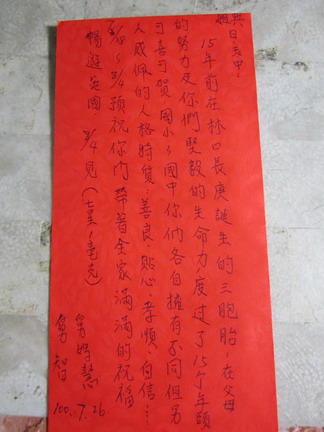 15年前在林口長庚誕生的三胞胎，在父母
的努力及你們堅毅的生命力，度過了15個年頭
可喜可賀國小、國中你們各自擁有不同但另
人感佩的人格特質：善良、貼心、孝順、自信…
預祝你們帶著全家滿滿的祝福
暢遊英國。8/4見（七星、毫克）
100.7.26